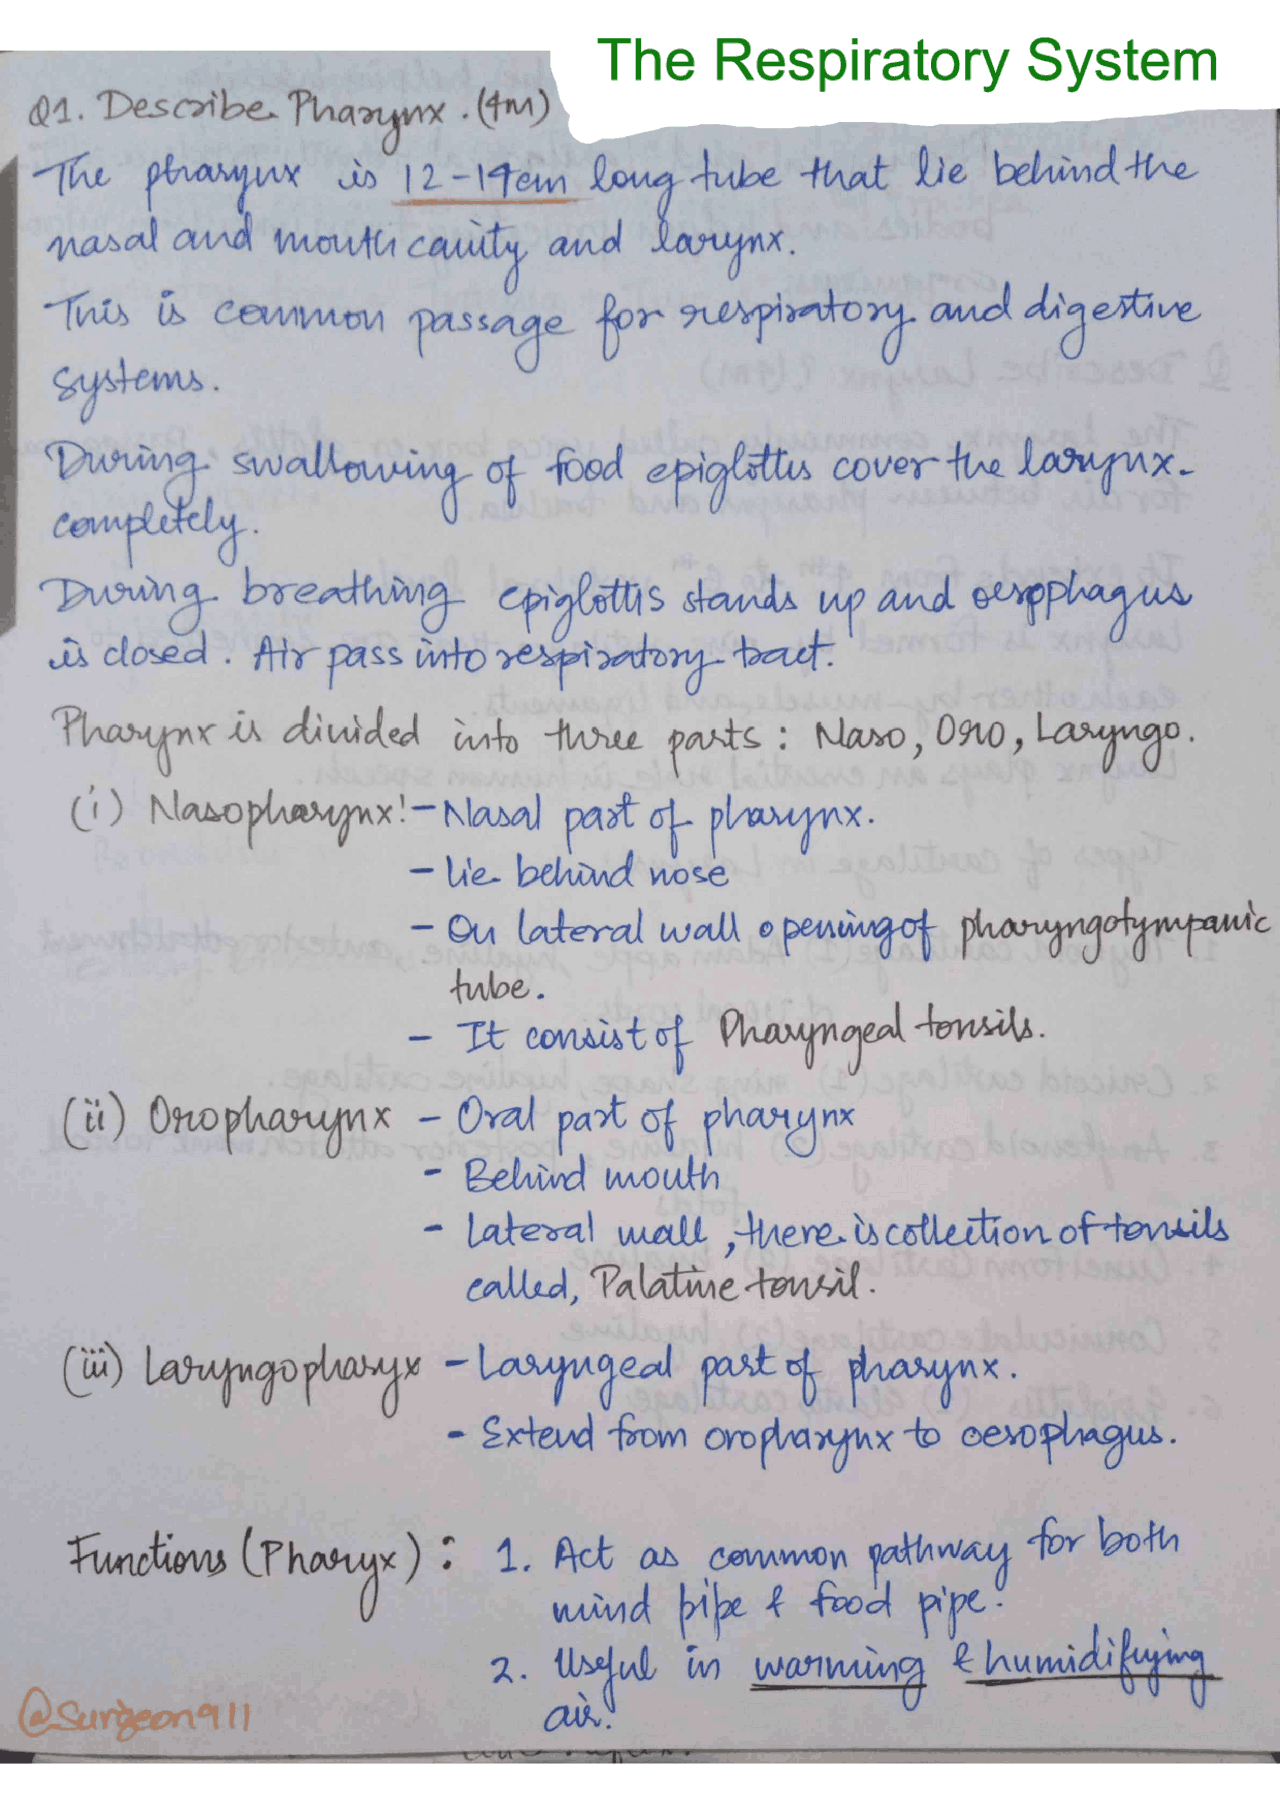 The Respiratory System
Q1. Describe Pharynx. (4M)
The pharynx is 12-14cm long tube that lie behind the
nasal and mouth cavity and larynx.
This is common passage for respiratory and digestive
systems.
During swallowing of food epiglottis cover the larynx.
completely.
During breathing epiglottis stands up and oesophagus
is closed. Air pass into respiratory tract.
Pharynx is divided into three parts: Naso, Oro, Laryngo.
(i) Nasopharynx:- Nasal part of pharynx.
- lie behind nose
- On lateral wall opening of pharyngotympanic
tube.
- It consist of Pharyngeal tonsils.
(ii) Oropharynx - Oral part of pharynx
- Behind mouth
- Lateral wall, there is collection of tonsils
called, Palatine tonsil.
(iii) Laryngopharyx - Laryngeal part of pharynx.
- Extend from oropharynx to oesophagus.
Functions (Pharyx): 1. Act as common pathway for both
wind pipe & food pipe.
2. Useful in warming & humidifying
air.
@Surgeon911